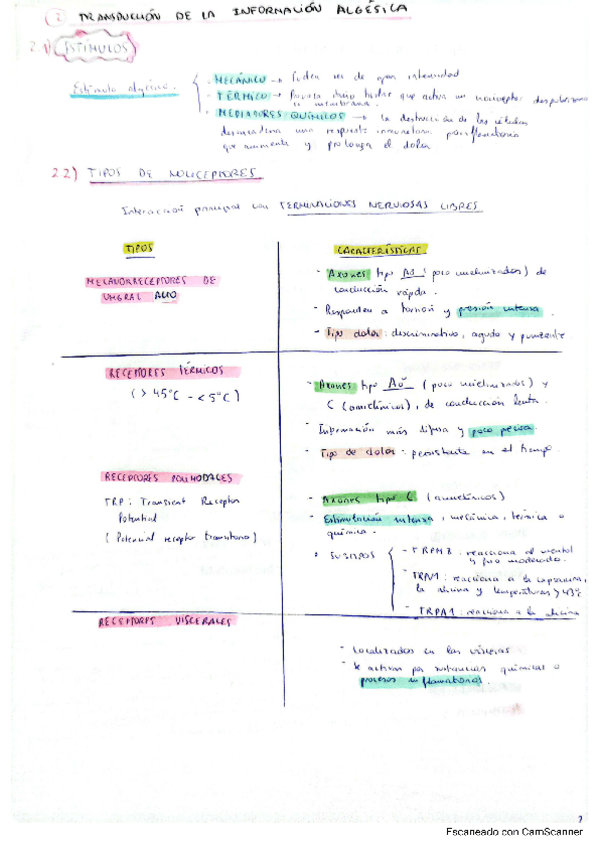 2 TRANSDUCCIÓN DE LA INFORMACIÓN ALGÉSICA
2.1) ESTÍMULOS
Estímulo algésico.
· MECÁNICO → Suelen ser de gran intensidad
· TÉRMICO → Provoca daño tisular que activa un nociceptor despolarizando
su membrana.
· MEDIADORES QUÍMICOS → la destrucción de las células
desencadena una respuesta inmunitaria proinflamatoria
que aumenta y prolonga el dolor.
2.2) TIPOS DE NOCICEPTORES
Interacción principal con TERMINACIONES NERVIOSAS LIBRES
TIPOS
CARACTERÍSTICAS
MECANORRECEPTORES DE
UMBRAL ALTO
- Axones tipo Aδ (poco mielinizados) de
conducción rápida.
- Responden a torsión y presión intensa.
- Tipo dolor: discriminativo, agudo y punzante
RECEPTORES TÉRMICOS
(> 45°C - < 5°C)
- Axones tipo Aδ (poco mielinizados) y
C (amielínicos), de conducción lenta.
- Información más difusa y poco precisa.
- Tipo de dolor: persistente en el tiempo
RECEPTORES POLIMODALES
TRP: Transient Receptor
Potential
(Potencial receptor transitorio)
- Axones tipo C (amielínicos)
- Estimulación intensa, mecánica, térmica o
química.
SUBTIPOS
- TRPM8: reacciona al mentol
y frío moderado.
- TRPV1: reacciona a la capsaicina,
la alicina y temperaturas > 43°C
- TRPA1: reacciona a la alicina
RECEPTORES VISCERALES
- Localizados en las vísceras
- Se activan por sustancias químicas o
procesos inflamatorios.
7
Escaneado con CamScanner